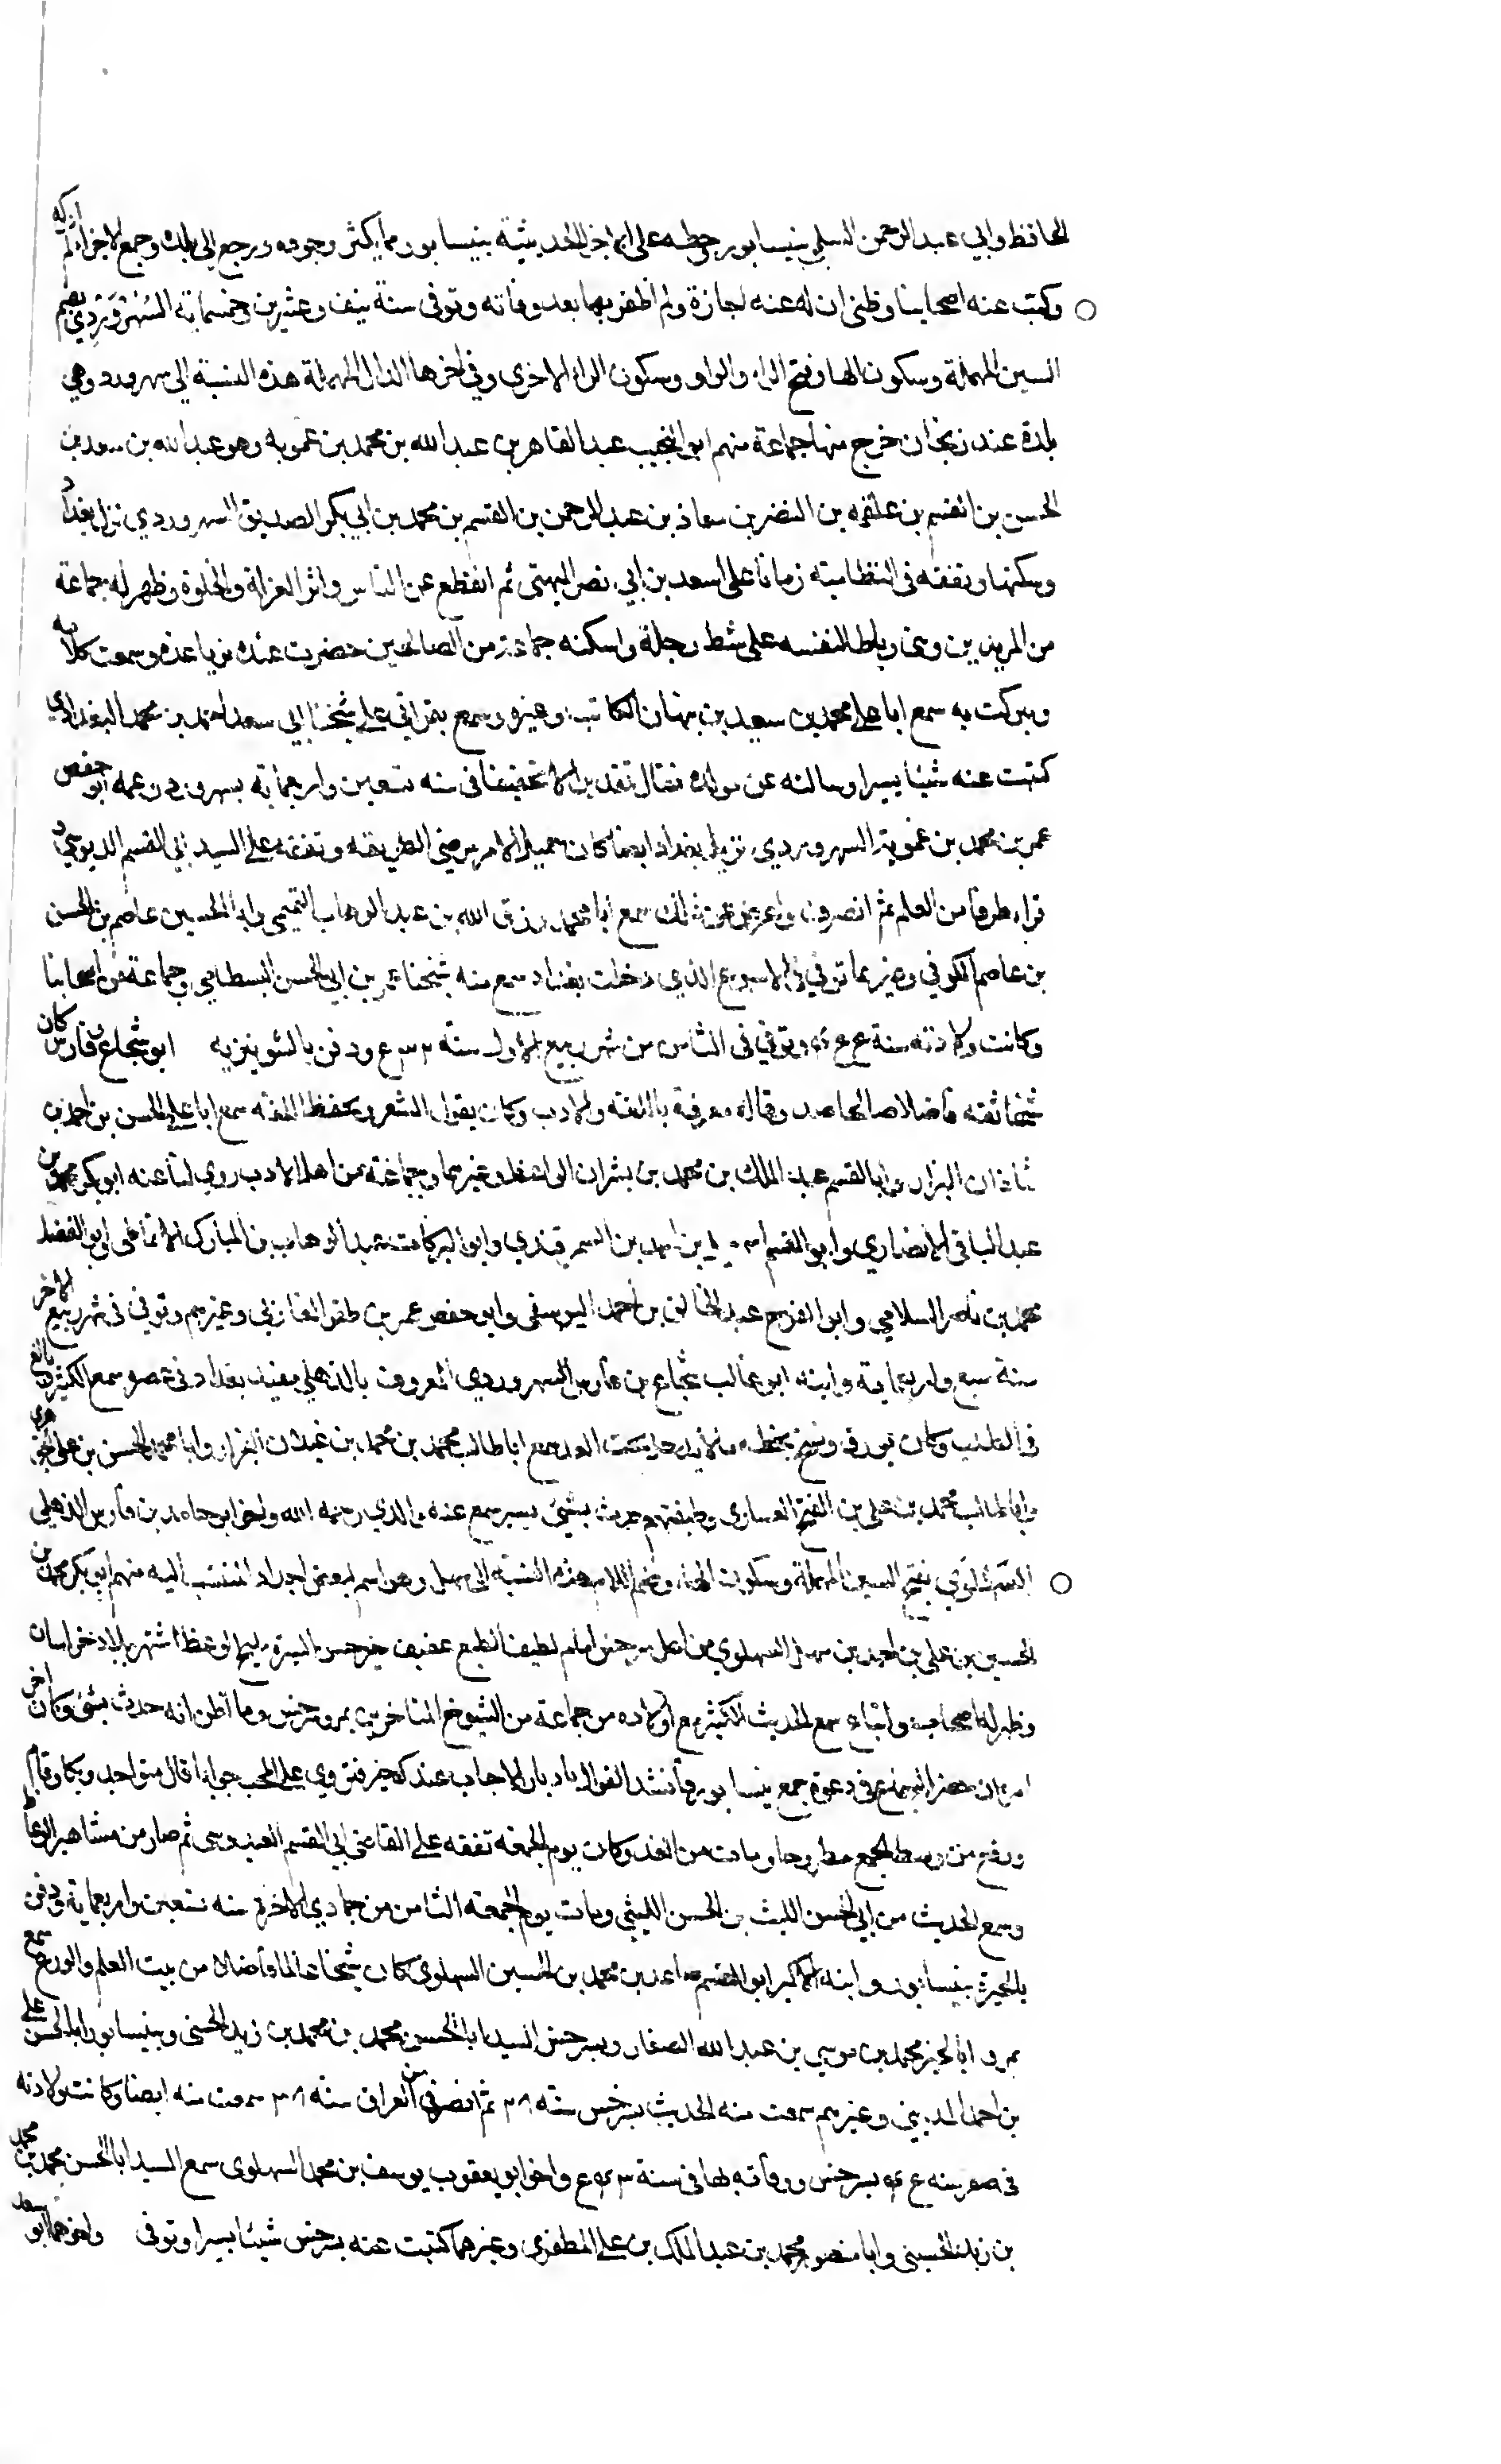 الحافظ وابي عبد الرحمن السلمي بنيسابور خطه على اجزا الحديثية بنيسابور مما يكثر وجوده ورجع الى بلده وجمع الاجزا ادركه
وكتب عنه اصحابنا وظني ان له عنه اجازة ولم اظفر بها بعد وفاته وتوفى سنة نيف وعشرين وخمسماية السُهْرَوَرْدي بضم
السين المهملة وسكون الها وفتح الراء والواو وسكون الراء الاخرى وفي اخرها الدال المهملة هذه النسبة الى سهرورد وهي
بلدة عند زنجان خرج منها جماعة منهم ابو النجيب عبد القاهر بن عبد الله بن محمد بن عمويه وهو عبد الله بن سعد بن
الحسن بن القسم بن علقمه بن النضر بن معاذ بن عبد الرحمن بن القسم بن محمد بن ابي بكر الصديق السهروردي نزل بغداد
وسكنها وتفقه في النظامية زمانا على اسعد بن ابي نصر الميهني ثم انقطع عن الناس واثر العزلة والخلوة وظهر له جماعة
من المريدين وبنى رباطا لنفسه على شط دجلة واسكنه جماعة من الصالحين حضرت عنده وسمعت كلامه
وتبركت به سمع ابا علي محمد بن سعيد بن نبهان الكاتب وغيره وسمع بقراتي على شيخنا ابي سعد احمد بن محمد البغدادي
كتبت عنه شيئا يسيرا وسالته عن مولده فقال تقديرا لا تحقيقا في سنه تسعين واربعماية بسهرورد وعمه ابو حفص
عمر بن محمد بن عمويه السهروردي نزيل بغداد ايضا كان جميل الامر مرضي الطريقه وتفقه على السيد ابي القسم الدبوسي
قراء طرفا من العلم ثم انصرف واعرض عن ذلك سمع ابا محمد رزق الله بن عبد الوهاب التميمي وابا الحسين عاصم بن الحسن
بن عاصم الكوفي وغيرهما توفي في الاسبوع الذي دخلت بغداد سمع منه شيخنا عمر بن ابي الحسن البسطامي وجماعة من اصحابنا
وكانت ولادته سنة وتوفي في الثامن من شهر ربيع الاول سنة ودفن بالشونيزيه ابو شجاع فارس كان
شيخا ثقه فاضلا صالحا وقاله معرفة باللغة والادب وكان يقول الشعر ويحفظ اللغه سمع ابا علي الحسن بن احمد بن
شاذان البزاز وابا القسم عبد الملك بن محمد بن بشران الواعظ وغيرهما وجماعة من اهل الادب روي لنا عنه ابو بكر محمد بن
عبد الباقي الانصاري وابو القسم بن احمد بن السمرقندي وابو البركات عبد الوهاب بن المبارك الانماطي وابو الفضل
محمد بن ناصر السلامي وابو الفرج عبد الخالق بن احمد اليوسفي وابو حفص عمر بن ظفر المغازلي وغيرهم وتوفي في شهر ربيع الاخر
سنة سبع واربعماية وابنه ابو غالب شجاع بن فارس السهروردي المعروف بالذهلي مفيد بغداد في عصره سمع الكثير وبالغ
في الطلب وكان يورق وينسخ بخطه ما لا يدخل تحت العد سمع ابا طالب محمد بن محمد بن غيلان البزاز وابا محمد الحسن بن علي الجوهري
وابا طالب محمد بن علي بن الفتح العشاري وطبقتهم وحدث بشيئ يسير سمع عنه والدي رحمه الله واخوه ابو حامد بن فارس الذهلي
السَهْلَوي بفتح السين المهملة وسكون الهاء وضم اللام هذه النسبة الى سهل وهو اسم لبعض اجداد المنتسب اليه منهم ابو بكر محمد بن
الحسين بن علي بن احمد بن سهل السهلوي من اهل سرخس امام لطيف الطبع عفيف خير حسن السيرة مليح الوعظ اشتهر ببلاد خراسان
وظهر له اصحاب واتباع سمع الحديث الكثير مع اولاده من جماعة من الشيوخ المتاخرين بمرو وسرخس وما اظن انه حدث بشئ وكان اخر
امره ان حضر السماع في دعوة جمع بنيسابور فانشد القوال فتزوي على المحب جوابا قال متواجد وبكا وقام
ورفع من وسط الجمع مطروحا ومات من الغد وكان يوم الجمعه تفقه على القاضي ابي القسم العبدوسي ثم صار من مشاهير الوعاظ
وسمع الحديث من ابي الحسن الليث بن الحسن الليثي ومات يوم الجمعه الثامن من جمادي الاخرة سنه تسعين واربعماية ودفن
بالحيرة بنيسابور وابنه الاكبر ابو القسم صاعد بن محمد بن الحسين السهلوي كان شيخا عالما فاضلا من بيت العلم والورع سمع
بمرو ابا الخير محمد بن موسي بن عبد الله الصفار وبسرخس السيد ابا الحسن محمد بن محمد بن زيد الحسني وبنيسابور ابا الحسن علي
بن احمد المديني وغيرهم سمعت منه الحديث بسرخس سنه ٣٨ ثم انصرفي من العراق سنه ٣٨ سمعت منه ايضا وكانت ولادته
في صفر سنه بسرخس ووفاته بها في سنة واخوه ابو يعقوب يوسف بن محمد السهلوي سمع السيد ابا الحسن محمد بن محمد
بن زيد الحسيني وابا منصور محمد بن عبد الملك بن علي المظفري وغيرهما كتبت عنه بسرخس شيئا يسيرا وتوفى واخوهما ابو سعد